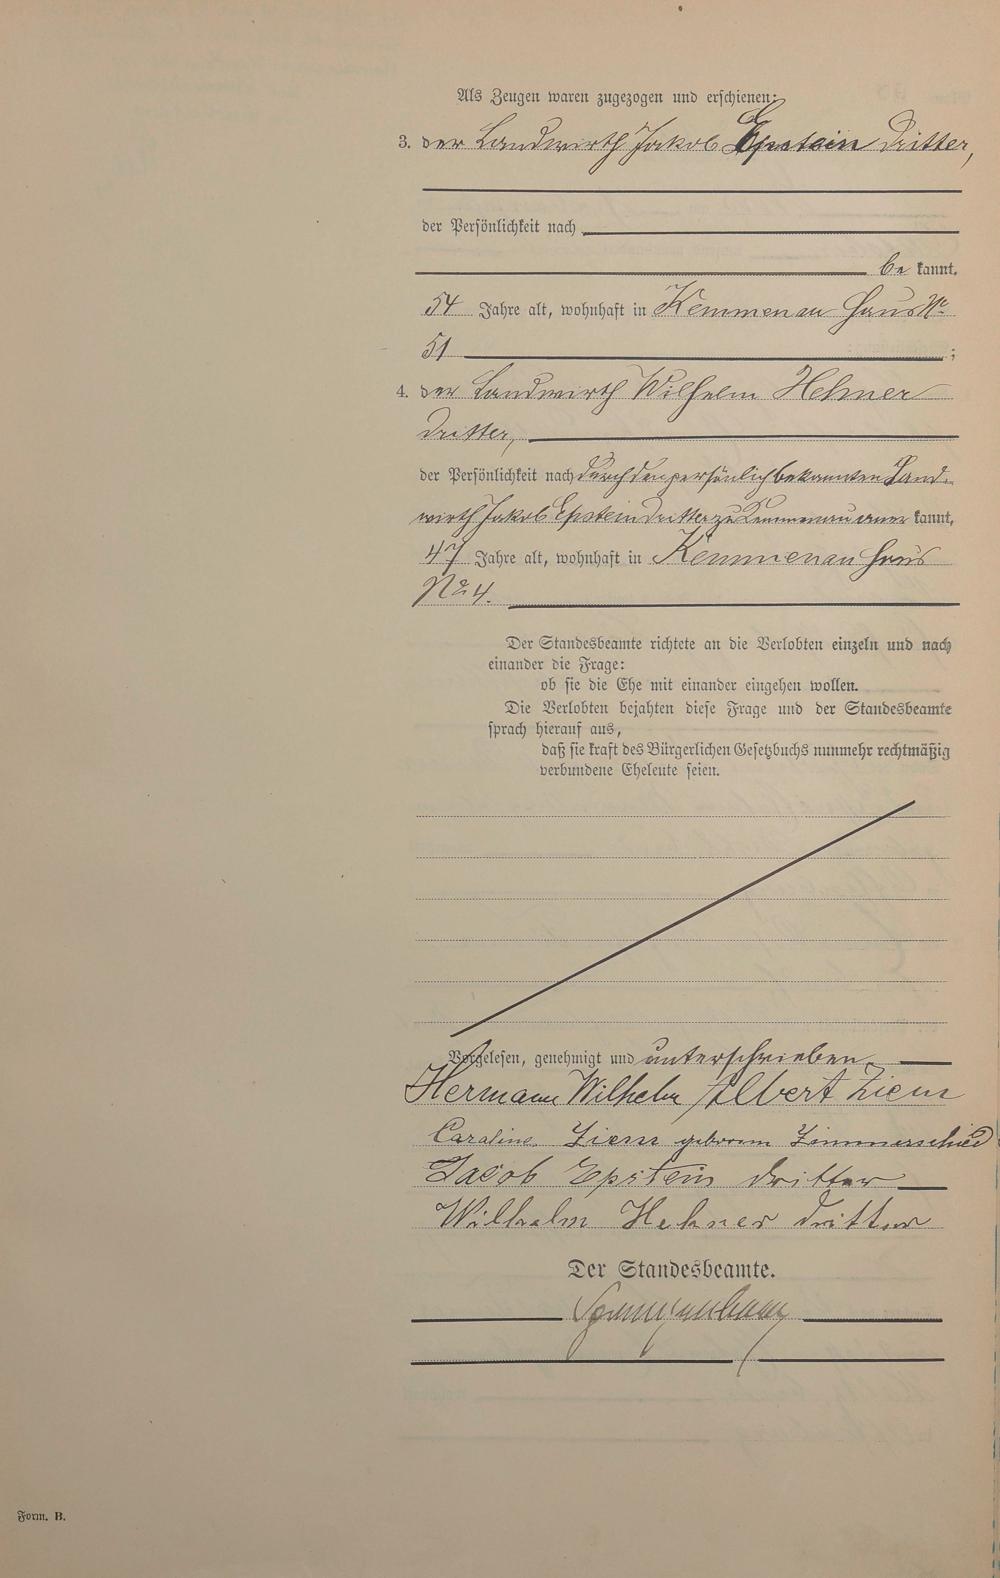 Als Zeugen waren zugezogen und erschienen:
3. der Landwirth Jakob Epstein dritter,
der Persönlichkeit nach
be kannt,
54 Jahre alt, wohnhaft in Kemmenau Haus No
51 ;
4. der Landwirth Wilhelm Hehner
dritter,
der Persönlichkeit nach durch den persönlich bekannten Land-
wirth Jakob Epstein dritter zu Kemmenau aner kannt,
47 Jahre alt, wohnhaft in Kemmenau Haus
No 4.
Der Standesbeamte richtete an die Verlobten einzeln und nach
einander die Frage:
ob sie die Ehe mit einander eingehen wollen.
Die Verlobten bejahten diese Frage und der Standesbeamte
sprach hierauf aus,
daß sie kraft des Bürgerlichen Gesetzbuchs nunmehr rechtmäßig
verbundene Eheleute seien.
Vorgelesen, genehmigt und unterschrieben.
Hermann Wilhelm Albert Ziem
Caroline Ziem geborene Zimmerschied
Jacob Epstein dritter
Wilhelm Hehner dritter
Der Standesbeamte.
Form. B.